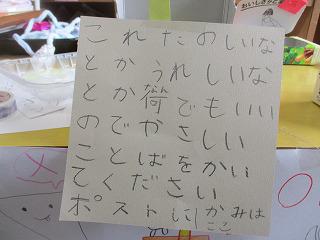 これたのしいな
とかうれしいな
とか何でもいい
のでやさしい
ことばをかい
てください
ポストに かみは
ここ